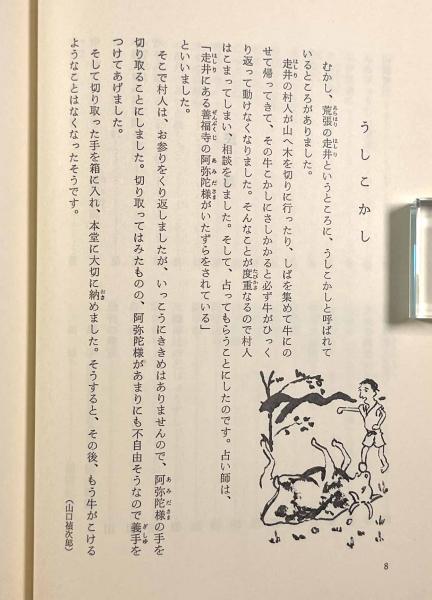 うしこかし
むかし、荒張の走井というところに、うしこかしと呼ばれて
いるところがありました。
走井の村人が山へ木を切りに行ったり、しばを集めて牛にの
せて帰ってきて、その牛こかしにさしかかると必ず牛がひっく
り返って動けなくなりました。そんなことが度重なるので村人
はこまってしまい、相談をしました。そして、占ってもらうことにしたのです。占い師は、
「走井にある善福寺の阿弥陀様がいたずらをされている」
といいました。
そこで村人は、お参りをくり返しましたが、いっこうにききめはありませんので、阿弥陀様の手を
切り取ることにしました。切り取ってはみたものの、阿弥陀様があまりにも不自由そうなので義手を
つけてあげました。
そして切り取った手を箱に入れ、本堂に大切に納めました。そうすると、その後、もう牛がこける
ようなことはなくなったそうです。
（山口禎次郎）
8